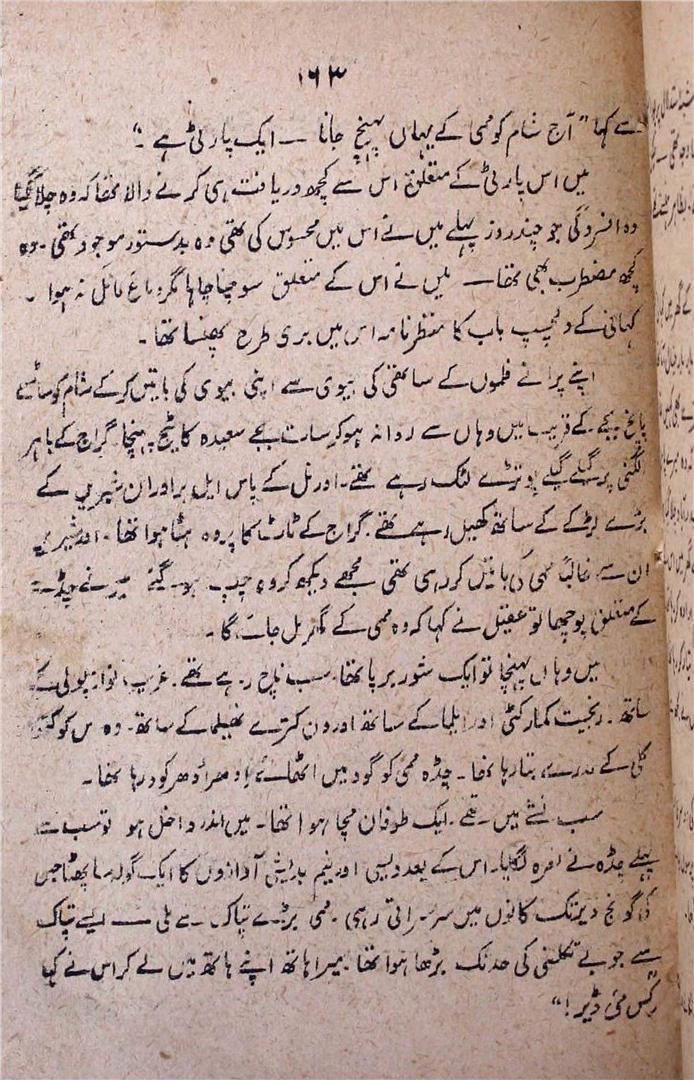 ۱۶۳
سے کہا "آج شام کو ممی کے یہاں پہنچ جانا — ایک پارٹی ہے۔"
میں اس پارٹی کے متعلق اس سے کچھ دریافت ہی کرنے والا تھا کہ وہ چلا گیا
وہ افسردگی جو چند روز پہلے میں نے اس میں محسوس کی تھی وہ بدستور موجود تھی۔ وہ
کچھ مضطرب بھی تھا — میں نے اس کے متعلق سوچنا چاہا مگر دماغ مائل نہ ہوا۔
کہانی کے دلچسپ باب کا منظرنامہ اس میں بری طرح پھنسا تھا۔
اپنے پرانے فلموں کے ساتھی کی بیوی سے اپنی بیوی کی باتیں کرکے شام کو ساڑھے
پانچ بجے کے قریب میں وہاں سے روانہ ہوکر سات بجے سعیدہ کاٹیج پہنچا۔ گراج کے باہر
الگنی پر گیلے گیلے پوتڑے لٹک رہے تھے۔ اور نل کے پاس ایل برادران شیریں کے
بڑے لڑکے کے ساتھ کھیل رہے تھے۔ گراج کے ٹاٹ کا پردہ ہٹا ہوا تھا۔ اور شیریں
ان سے غالباً ممی کی باتیں کر رہی تھی مجھے دیکھ کر وہ چپ ہو گئے میں نے چڈے
کے متعلق پوچھا تو عقیل نے کہا کہ وہ ممی کے گھر مل جائے گا۔
میں وہاں پہنچا تو ایک شور برپا تھا۔ سب ناچ رہے تھے۔ غریب نواز پولی کے
ساتھ۔ رنجیت کمار کٹی اور ایلما کے ساتھ اور ون کترے تھیلما کے ساتھ۔ وہ اس کو کتھا
کلی کے مدرے بتا رہا تھا۔ چڈہ ممی کو گود میں اٹھائے ادھر ادھر کود رہا تھا۔
سب نشے میں تھے۔ ایک طوفان مچا ہوا تھا۔ میں اندر داخل ہو تو سب سے
پہلے چڈہ نے نعرہ لگایا۔ اس کے بعد دیسی اور نیم بدیشی آوازوں کا ایک گولہ سا پھٹا جس
کی گونج دیر تک کانوں میں سرسراتی رہی۔ ممی بڑے تپاک سے ملی — ایسے تپاک
سے جو بے تکلفی کی حد تک بڑھا ہوا تھا۔ میرا ہاتھ اپنے ہاتھ میں لے کر اس نے کہا
"کس می ڈیر!"